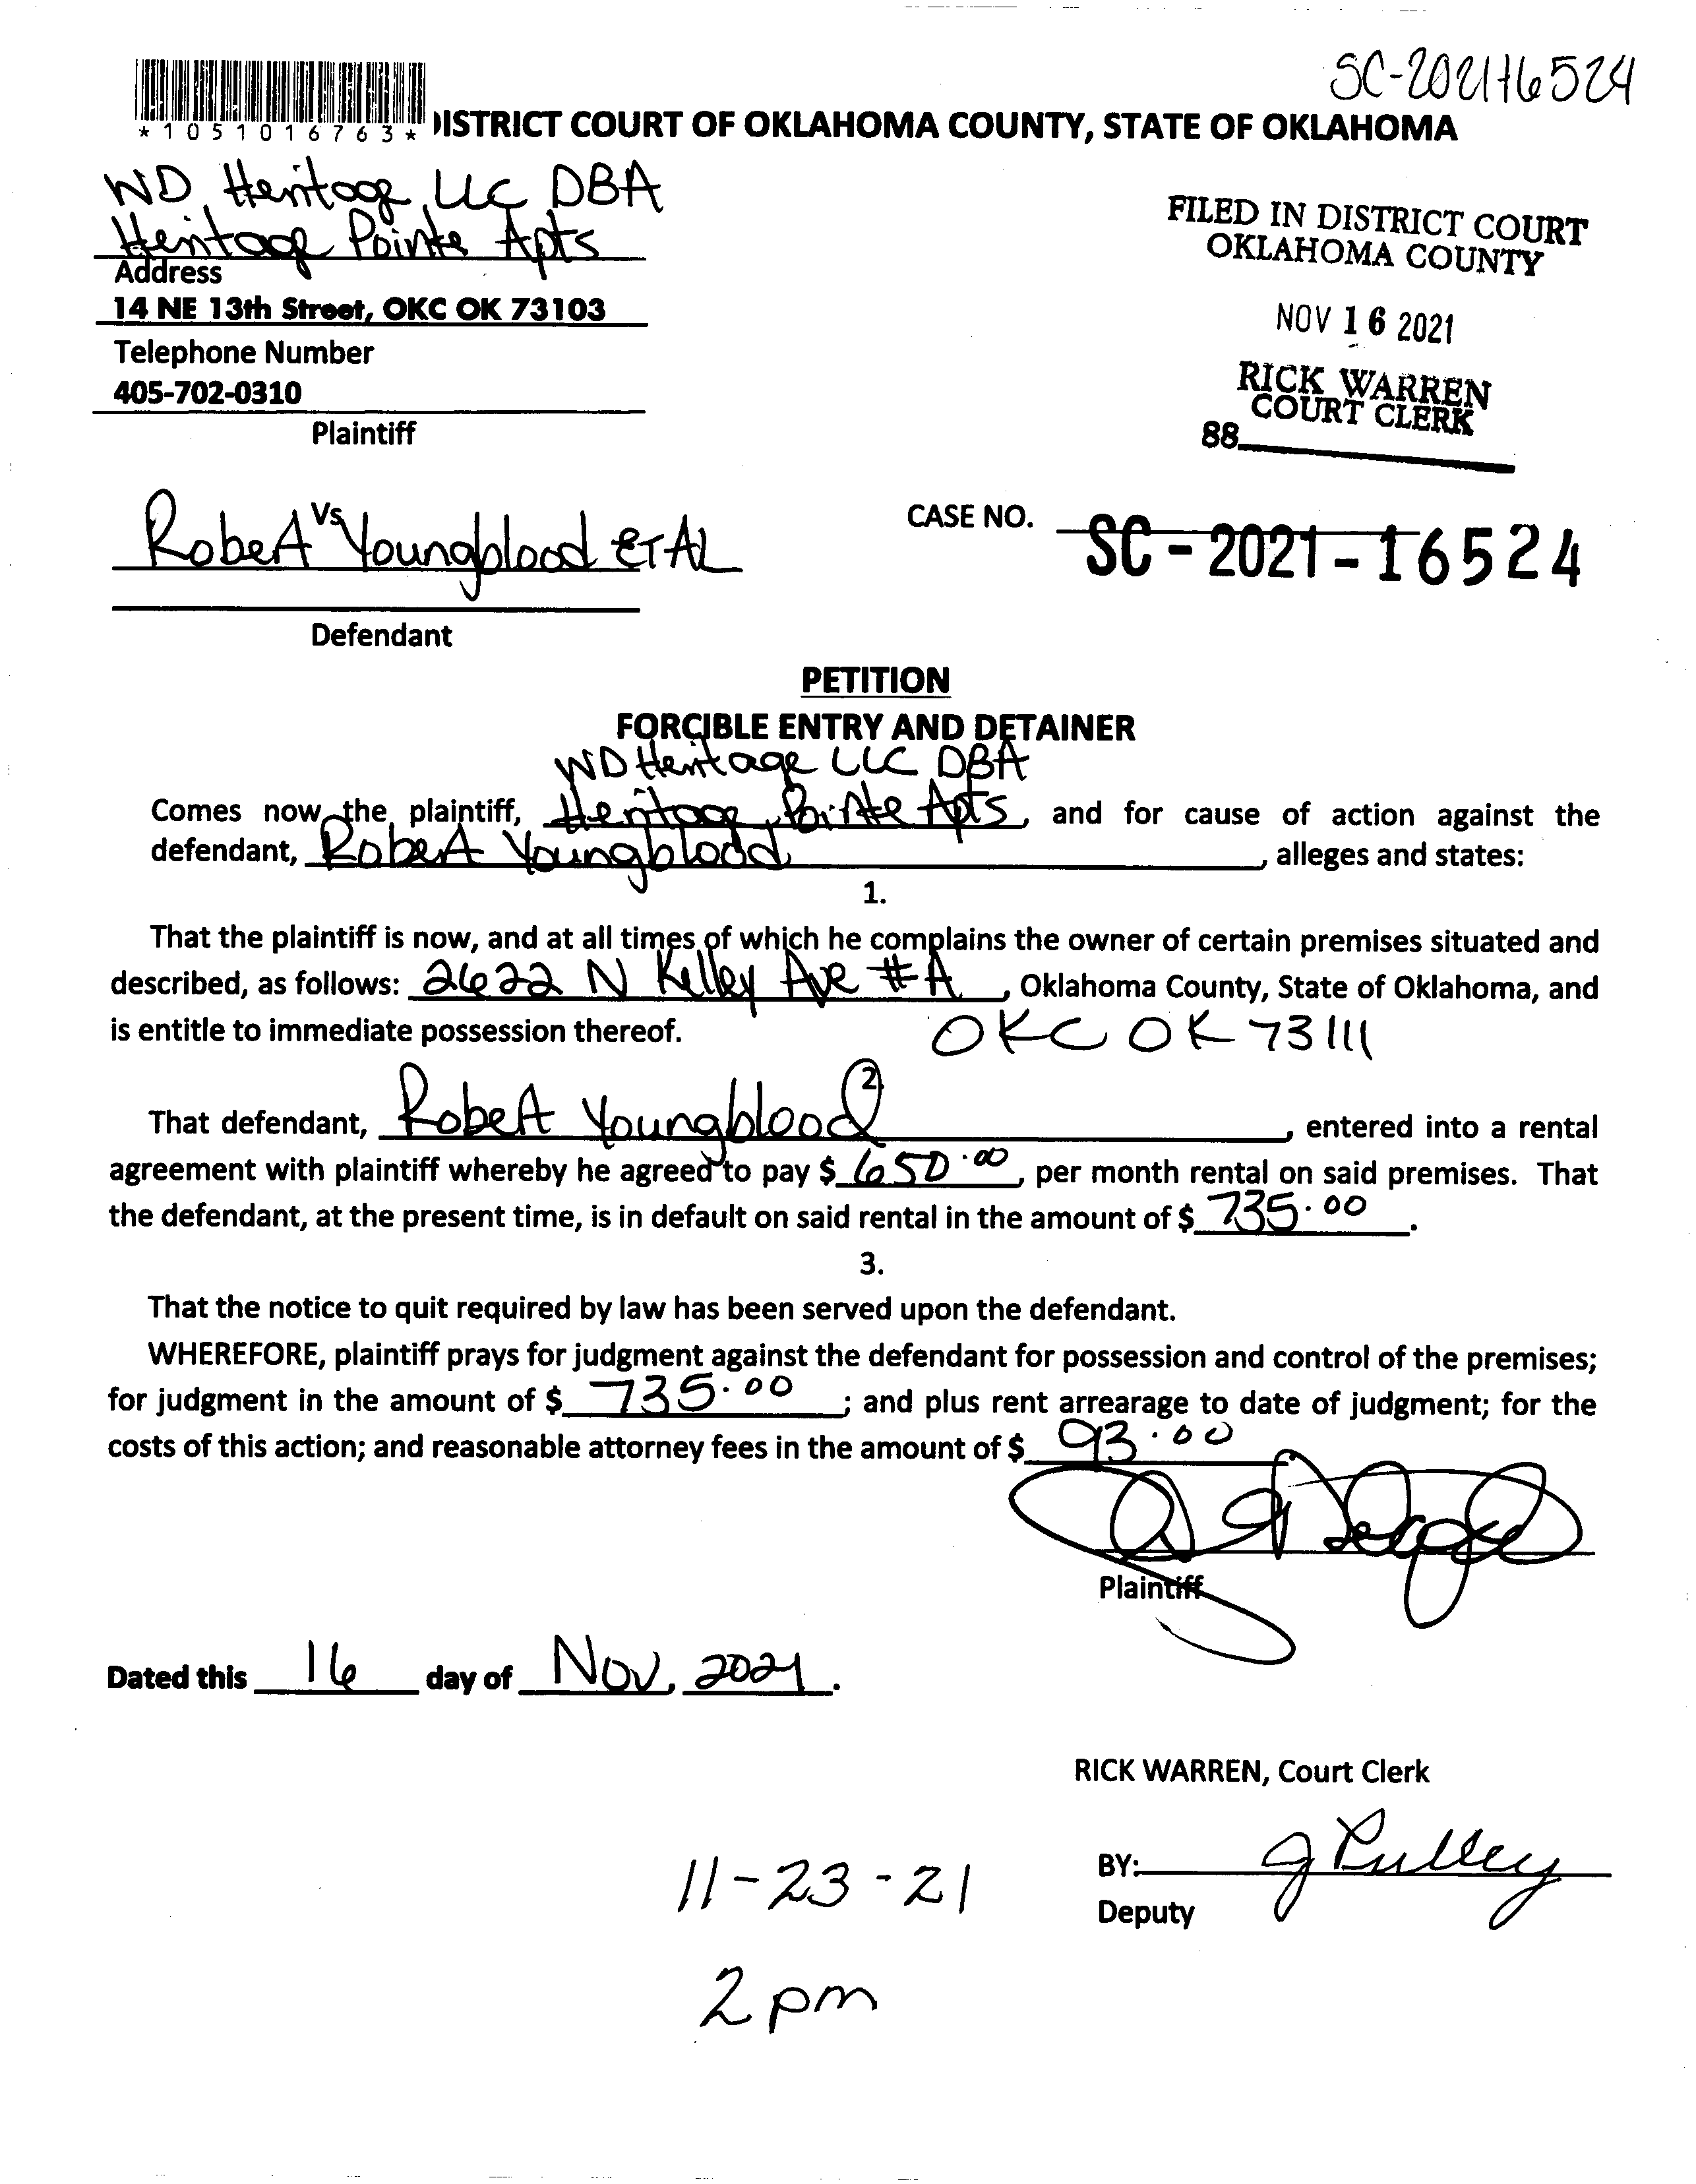 SC-2021-16524
*1051016763*
ISTRICT COURT OF OKLAHOMA COUNTY, STATE OF OKLAHOMA
WD Heritage LLC DBA
Heritage Pointe Apts
Address
14 NE 13th Street, OKC OK 73103
Telephone Number
405-702-0310
Plaintiff
FILED IN DISTRICT COURT
OKLAHOMA COUNTY
NOV 16 2021
RICK WARREN
COURT CLERK
88
vs
Robert Youngblood ET AL
Defendant
CASE NO. SC-2021-16524
PETITION
FORCIBLE ENTRY AND DETAINER
WD Heritage LLC DBA
Comes now the plaintiff, Heritage Pointe Apts, and for cause of action against the
defendant, Robert Youngblood, alleges and states:
1.
That the plaintiff is now, and at all times of which he complains the owner of certain premises situated and
described, as follows: 2622 N Kelley Ave #A, Oklahoma County, State of Oklahoma, and
is entitle to immediate possession thereof. OKC OK 73111
2.
That defendant, Robert Youngblood, entered into a rental
agreement with plaintiff whereby he agreed to pay $ 650.00, per month rental on said premises. That
the defendant, at the present time, is in default on said rental in the amount of $ 735.00.
3.
That the notice to quit required by law has been served upon the defendant.
WHEREFORE, plaintiff prays for judgment against the defendant for possession and control of the premises;
for judgment in the amount of $ 735.00; and plus rent arrearage to date of judgment; for the
costs of this action; and reasonable attorney fees in the amount of $ 93.00
Plaintiff
Dated this 16 day of Nov, 2021.
RICK WARREN, Court Clerk
BY: J Pulley
Deputy
11-23-21
2 pm